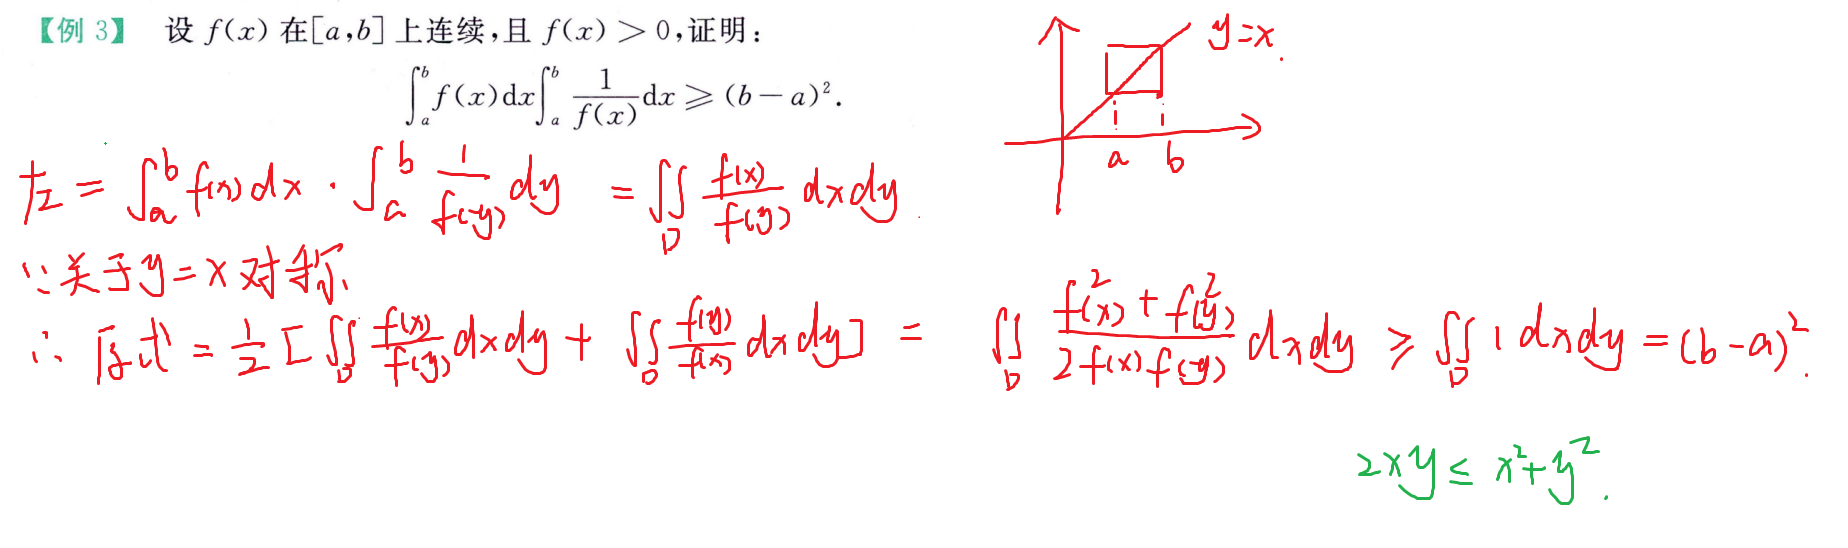 【例 3】 设 f(x) 在[a,b] 上连续,且 f(x) > 0,证明:
∫_a^b f(x)dx∫_a^b 1/f(x) dx ⩾ (b − a)².
y=x.
a b
左 = ∫_a^b f(x)dx · ∫_a^b 1/f(y) dy = ∬_D f(x)/f(y) dxdy
∵关于y=x对称
∴ 原式 = 1/2 [∬_D f(x)/f(y) dxdy + ∬_D f(y)/f(x) dxdy] = ∬_D (f²(x) + f²(y))/(2f(x)f(y)) dxdy ⩾ ∬_D 1 dxdy = (b-a)².
2xy ≤ x²+y².